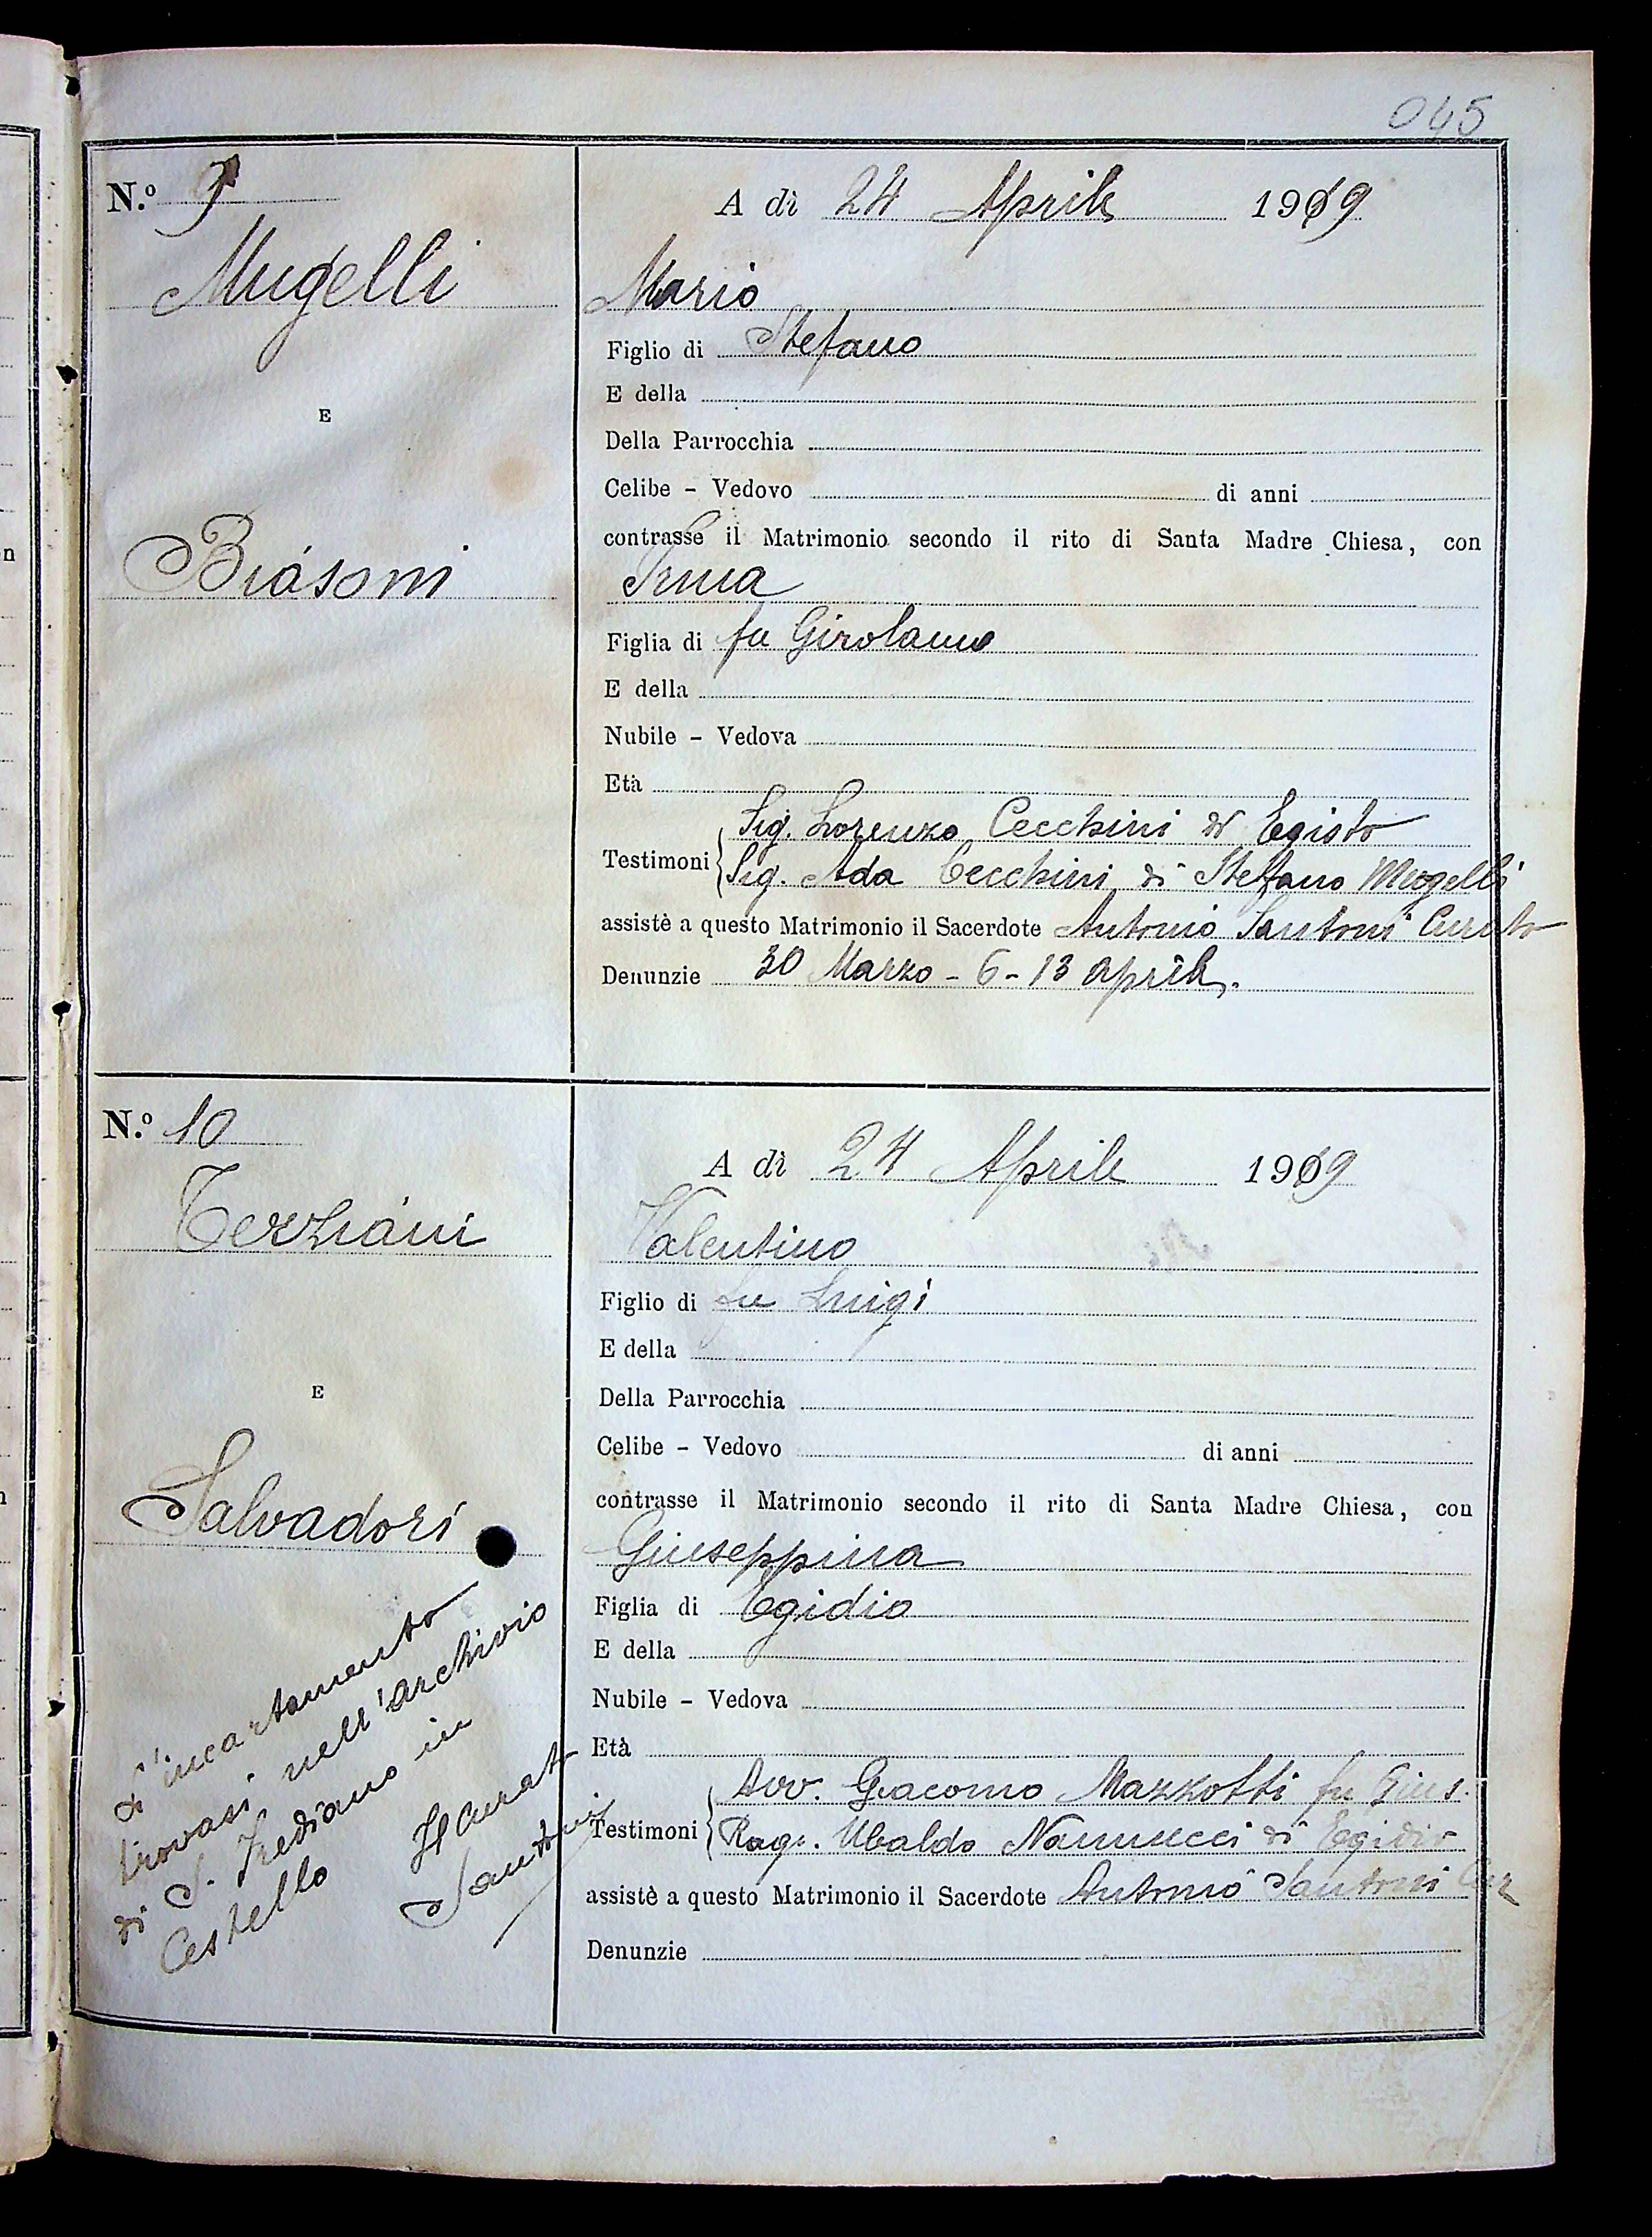 045
N.º 9
Mugelli
E
Biasoni
A dì 24 Aprile 1919
Mario
Figlio di Stefano
E della
Della Parrocchia
Celibe - Vedovo di anni
contrasse il Matrimonio secondo il rito di Santa Madre Chiesa, con
Irma
Figlia di fu Girolamo
E della
Nubile - Vedova
Età
Testimoni Sig. Lorenzo Cecchini di Egisto
Sig. Ada Cecchini di Stefano Mugelli
assistè a questo Matrimonio il Sacerdote Antonio Santoni Curato
Denunzie 30 Marzo - 6 - 13 aprile.
N.º 10
Terziani
E
Salvadori
L'incartamento
trovasi nell'archivio
di S. Frediano in
Cestello
Il Curato
Santoni
A dì 24 Aprile 1919
Valentino
Figlio di fu Luigi
E della
Della Parrocchia
Celibe - Vedovo di anni
contrasse il Matrimonio secondo il rito di Santa Madre Chiesa, con
Giuseppina
Figlia di Egidio
E della
Nubile - Vedova
Età
Testimoni Avv. Giacomo Mazzotti fu Gius.
Rag. Ubaldo Nannucci di Egidio
assistè a questo Matrimonio il Sacerdote Antonio Santoni Cur
Denunzie